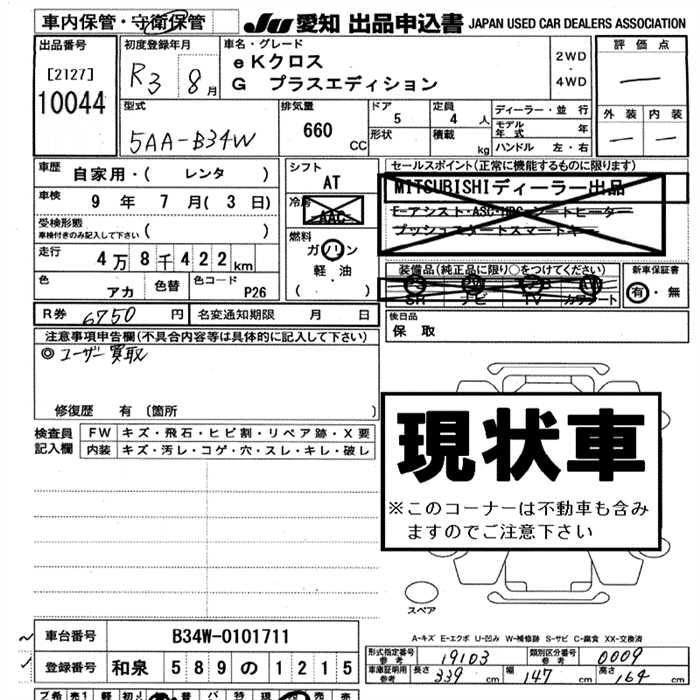 車内保管・守衛保管
JU 愛知 出品申込書 JAPAN USED CAR DEALERS ASSOCIATION
出品番号
[2127]
10044
初度登録年月
R3 8月
車名・グレード
eKクロス
G プラスエディション
2WD
・
4WD
評価点
外装 内装
型式
5AA-B34W
排気量
660 CC
ドア
5
形状
定員
4 人
積載
kg
ディーラー・並行
モデル年式 年
ハンドル 左・右
車歴
自家用・( レンタ )
車検 9 年 7 月( 3 日)
受検形態
車検付きのみ記入して下さい ( )
走行 4万8千422km
色 アカ 色替 色コード P26
シフト
AT
冷房
AAC
燃料
ガソリン
軽・油
( )
セールスポイント(正常に機能するものに限ります)
MITSUBISHIディーラー出品
プッシュスタートスマートキー
装備品(純正品に限り○をつけてください)
SR ナビ TV カワシート
新車保証書
有・無
R券 6750 円
名変通知期限 月 日
後日品
保 取
注意事項申告欄(不具合内容等は具体的に記入して下さい)
◎ユーザー買取
修復歴 有 〔箇所 〕
検査員記入欄
FW キズ・飛石・ヒビ割・リペア跡・X要
内装 キズ・汚レ・コゲ・穴・スレ・キレ・破レ
現状車
※このコーナーは不動車も含み
ますのでご注意下さい
スペア
A-キズ E-エクボ U-凹み W-補修跡 S-サビ C-腐食 XX-交換済
車台番号 B34W-0101711
登録番号 和泉 589の1215
形式指定番号
参考 19103
類別区分番号
参考 0009
車庫証明用
参考 長さ 339 cm 幅 147 cm 高さ 164 cm